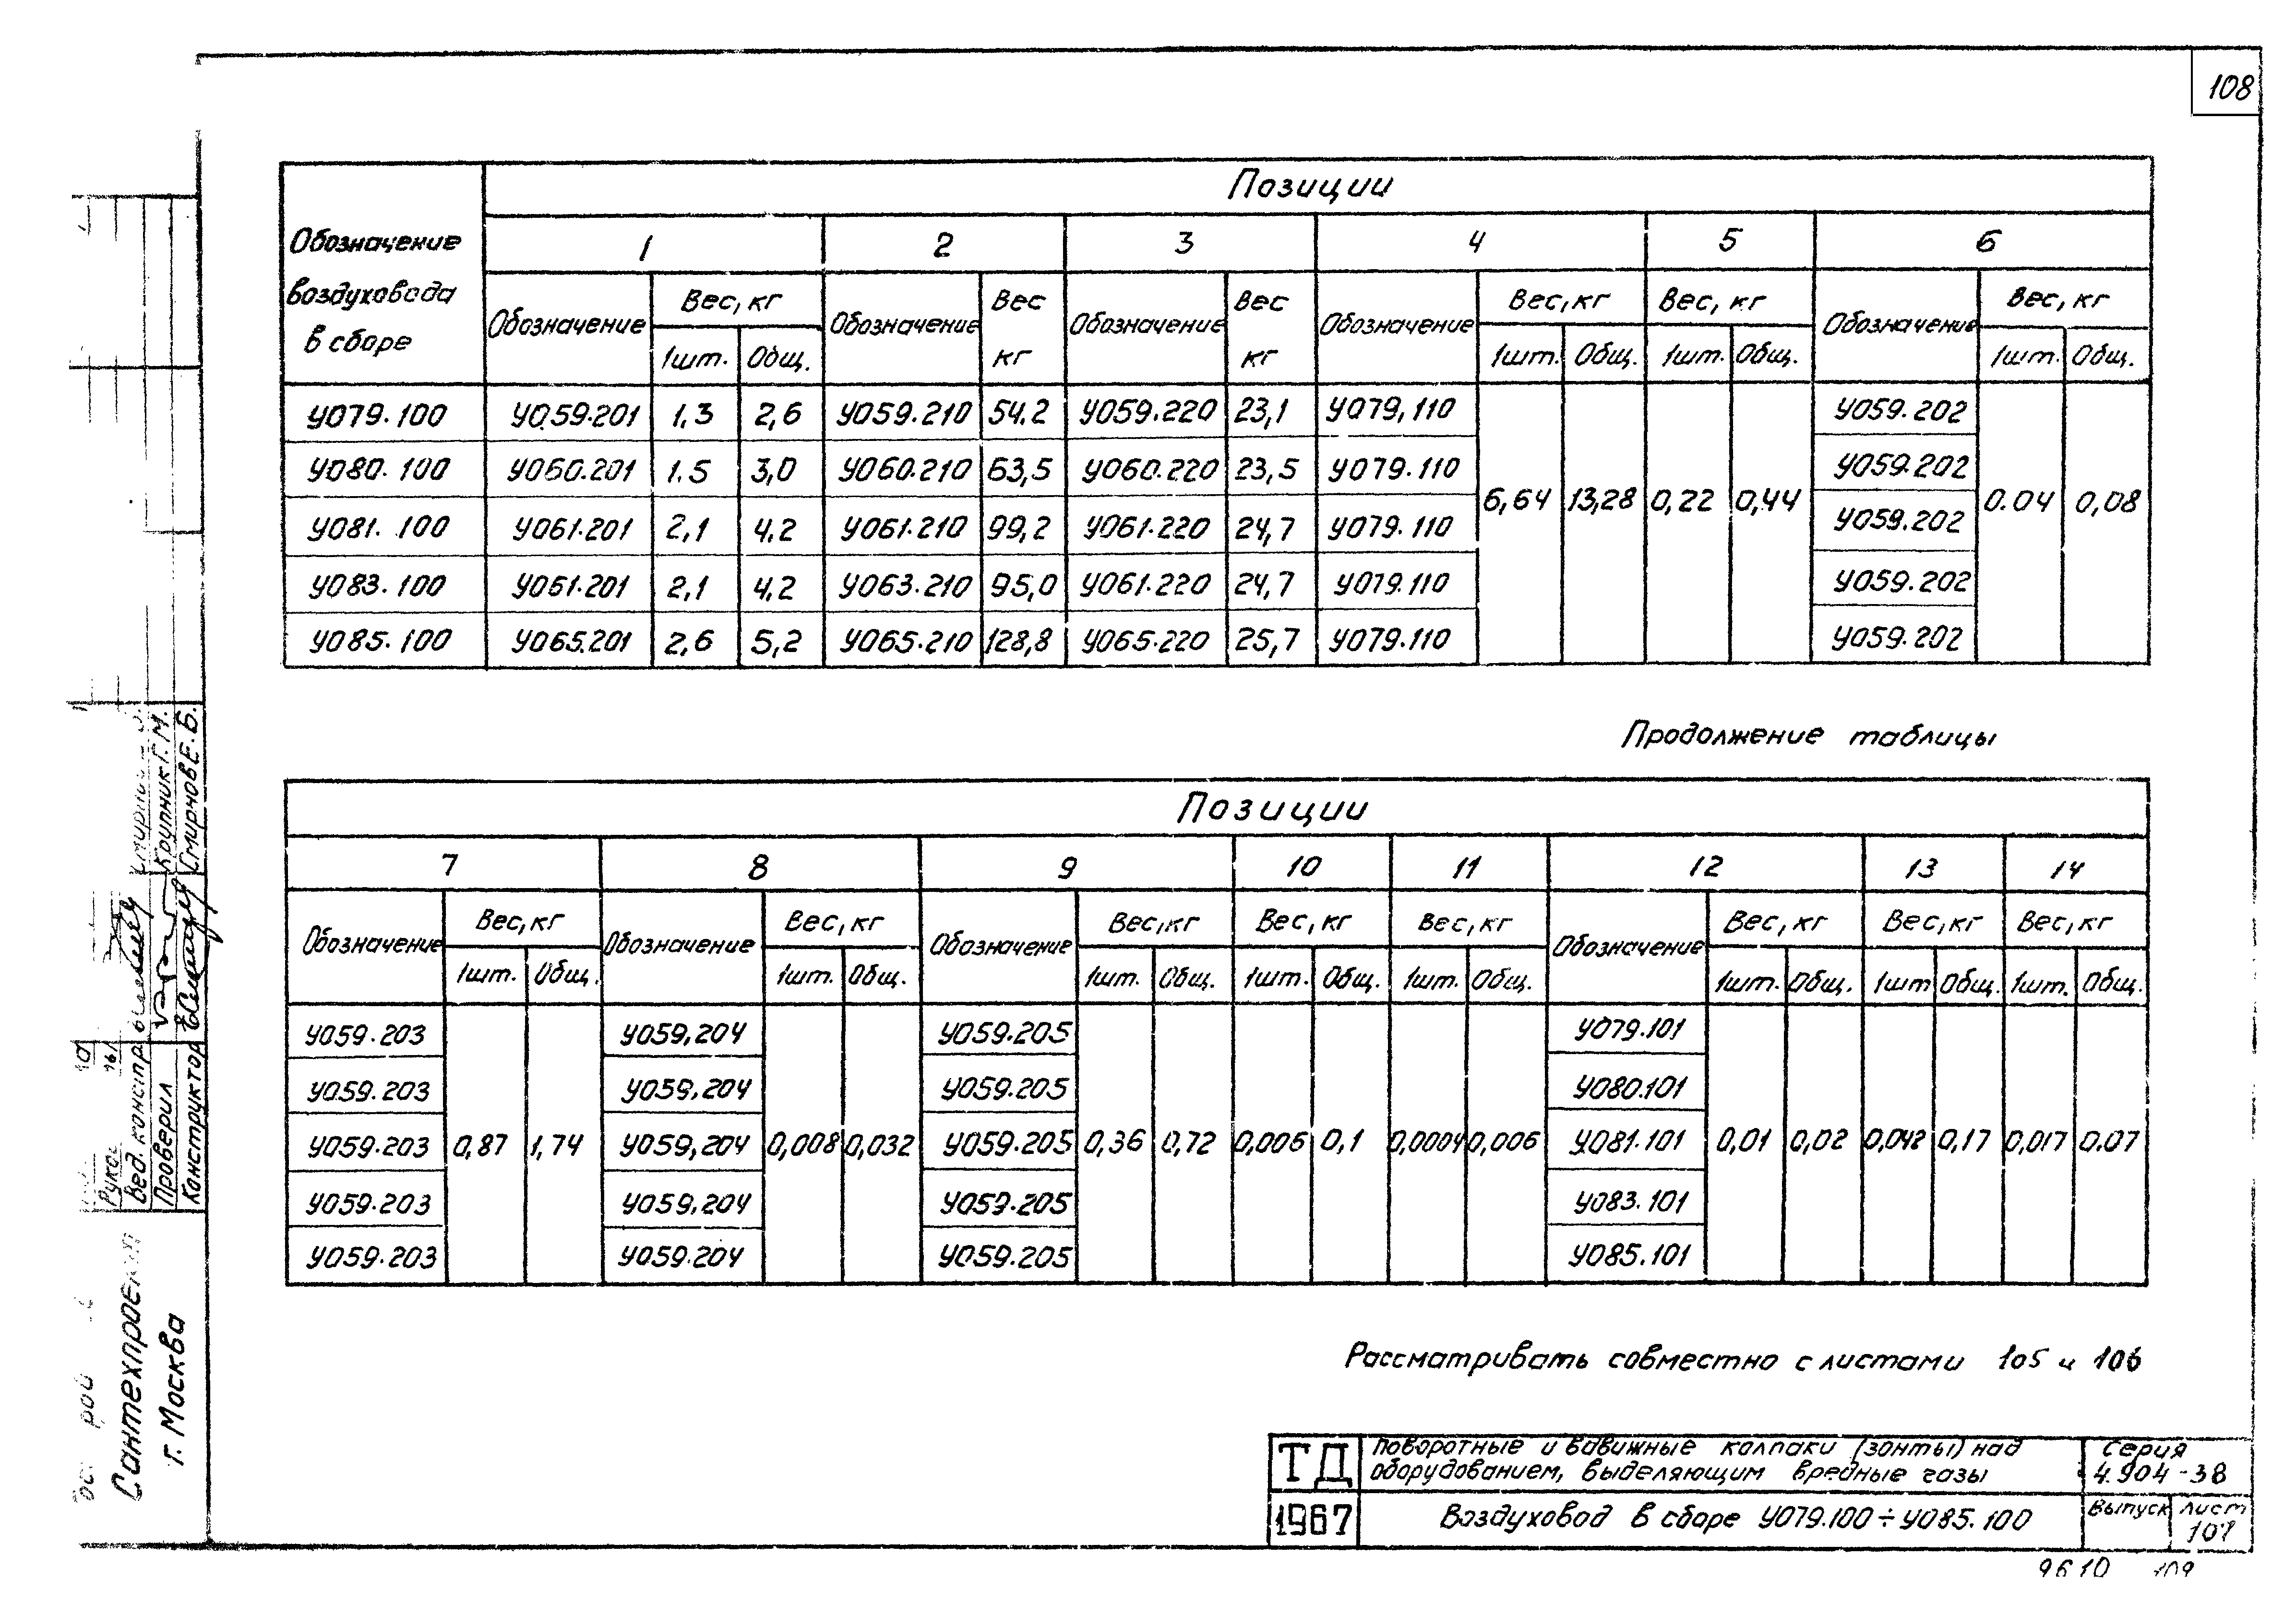 108
Позиции
Обозначение воздуховода в сборе
1 2 3 4 5 6
Обозначение Вес, кг Обозначение Вес кг Обозначение Вес кг Обозначение Вес, кг Вес, кг Обозначение Вес, кг
1шт. Общ. 1шт. Общ. 1шт. Общ. 1шт. Общ.
У079.100 У059.201 1,3 2,6 У059.210 54.2 У059.220 23,1 У079,110 У059.202
У080.100 У060.201 1.5 3,0 У060.210 63,5 У060.220 23,5 У079.110 У059.202
6,64 13,28 0,22 0,44 0.04 0,08
У081.100 У061.201 2,1 4.2 У061.210 99,2 У061.220 24,7 У079.110 У059.202
У083.100 У061.201 2,1 4.2 У063.210 95,0 У061.220 24,7 У079.110 У059.202
У085.100 У065.201 2,6 5,2 У065.210 128,8 У065.220 25,7 У079.110 У059.202
Продолжение таблицы
Позиции
7 8 9 10 11 12 13 14
Обозначение Вес, кг Обозначение Вес, кг Обозначение Вес,кг Вес, кг Вес, кг Обозначение Вес, кг Вес, кг Вес, кг
1шт. Общ. 1шт. Общ. 1шт. Общ. 1шт. Общ. 1шт. Общ. 1шт. Общ. 1шт Общ. 1шт. Общ.
У059.203 У059,204 У059.205 У079.101
У059.203 У059,204 У059.205 У080.101
У059.203 0,87 1,74 У059,204 0,008 0,032 У059.205 0,36 0,72 0,006 0,1 0,0004 0,006 У081.101 0,01 0,02 0,042 0,17 0,017 0.07
У059.203 У059,204 У059.205 У083.101
У059.203 У059.204 У059.205 У085.101
Рассматривать совместно с листами 105 и 106
ТД
Поворотные и вдвижные колпаки (зонты) над
оборудованием, выделяющим вредные газы
Серия
4.904-38
1967
Воздуховод в сборе У079.100÷У085.100
Выпуск Лист
107
9610 109
Крупник Г.М.
Смирнов Е.Б.
Вед. констр
Проверил
Конструктор
Сантехпроект
г. Москва